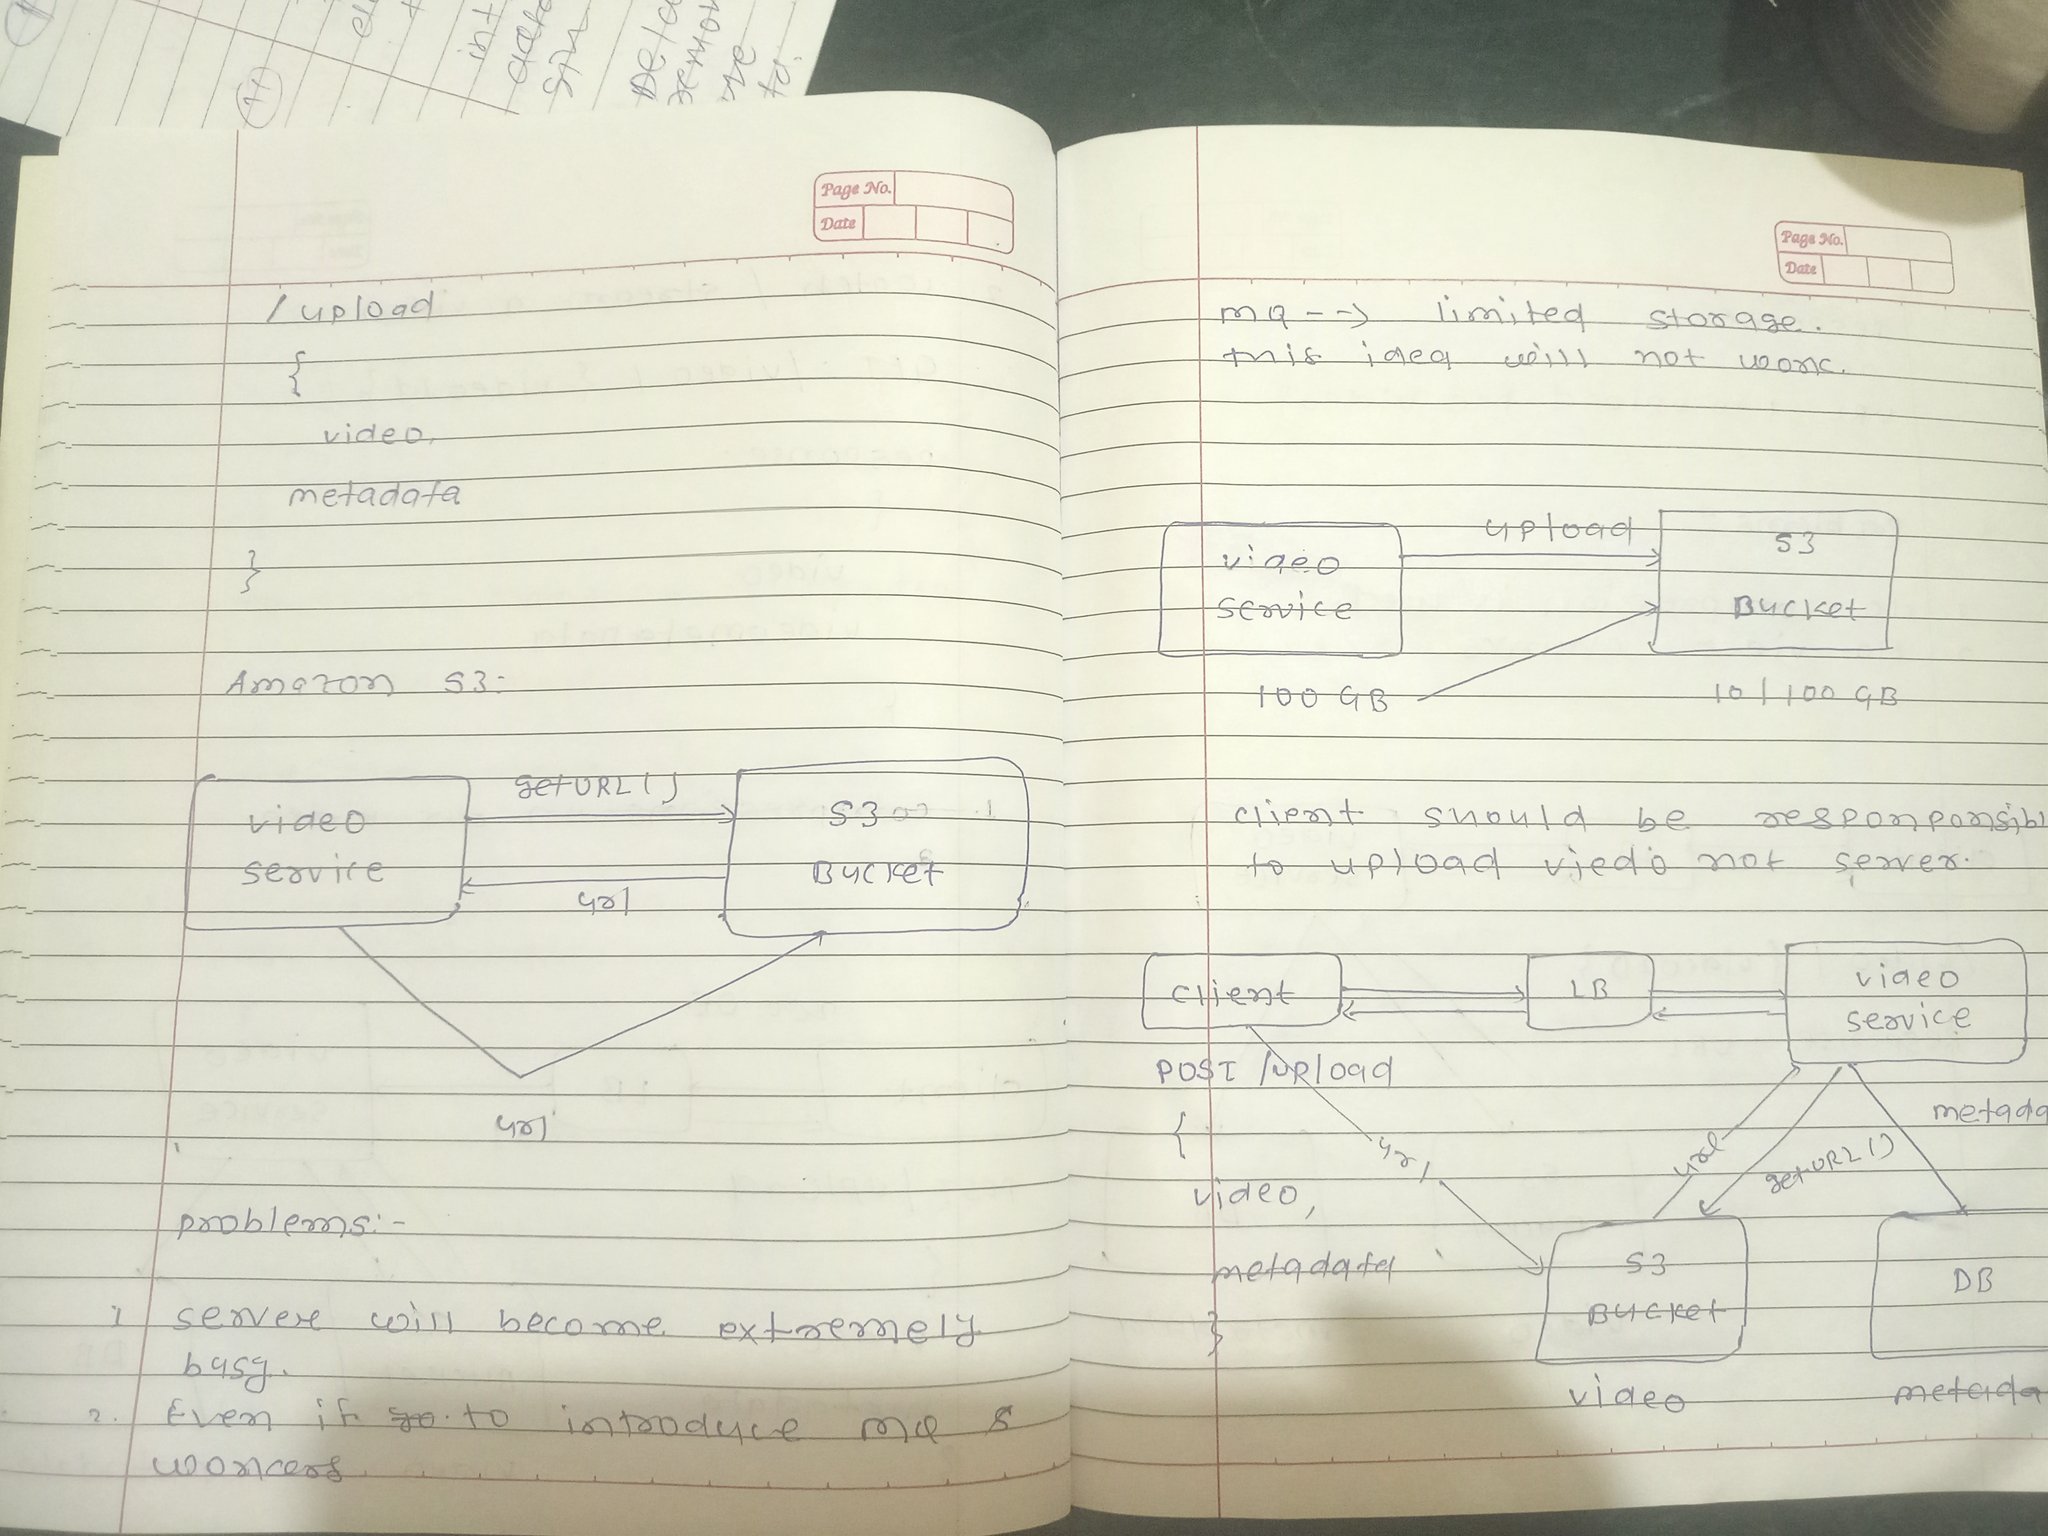 int
Page No.
Date
/upload
{
video,
metadata
}
Amazon S3:
getURL()
video
service
S3
Bucket
url
url
problems:-
1 server will become extremely
busy.
2. Even if go to introduce mq &
workers
Page No.
Date
mq --> limited storage.
this idea will not work.
upload
video
service
S3
Bucket
100 GB
10 / 100 GB
client should be responponsibl
to upload viedo not server.
client
LB
video
service
POST /upload
{
video,
metadata
}
url
url
getURL()
metada
S3
Bucket
DB
video
metada